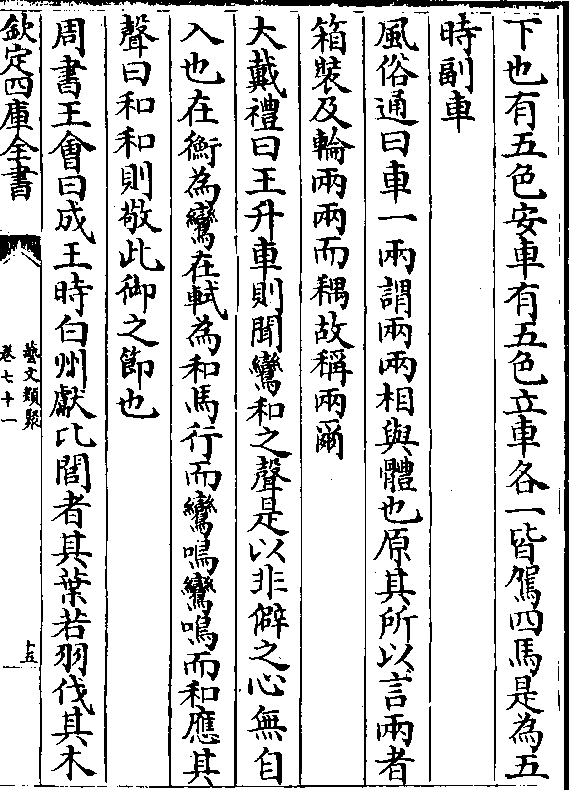 下也有五色安車有五色立車各一皆駕四馬是為五
時副車
風俗通曰車一兩謂兩兩相與體也原其所以言兩者
箱裝及輪兩兩而耦故稱兩爾
大戴禮曰王升車則聞鸞和之聲是以非僻之心無自
入也在衡為鸞在軾為和馬行而鸞鳴鸞鳴而和應其
聲曰和和則敬此御之節也
周書王會曰成王時白州獻比閭者其葉若羽伐其木
欽定四庫全書
藝文類聚
卷七十一
十五